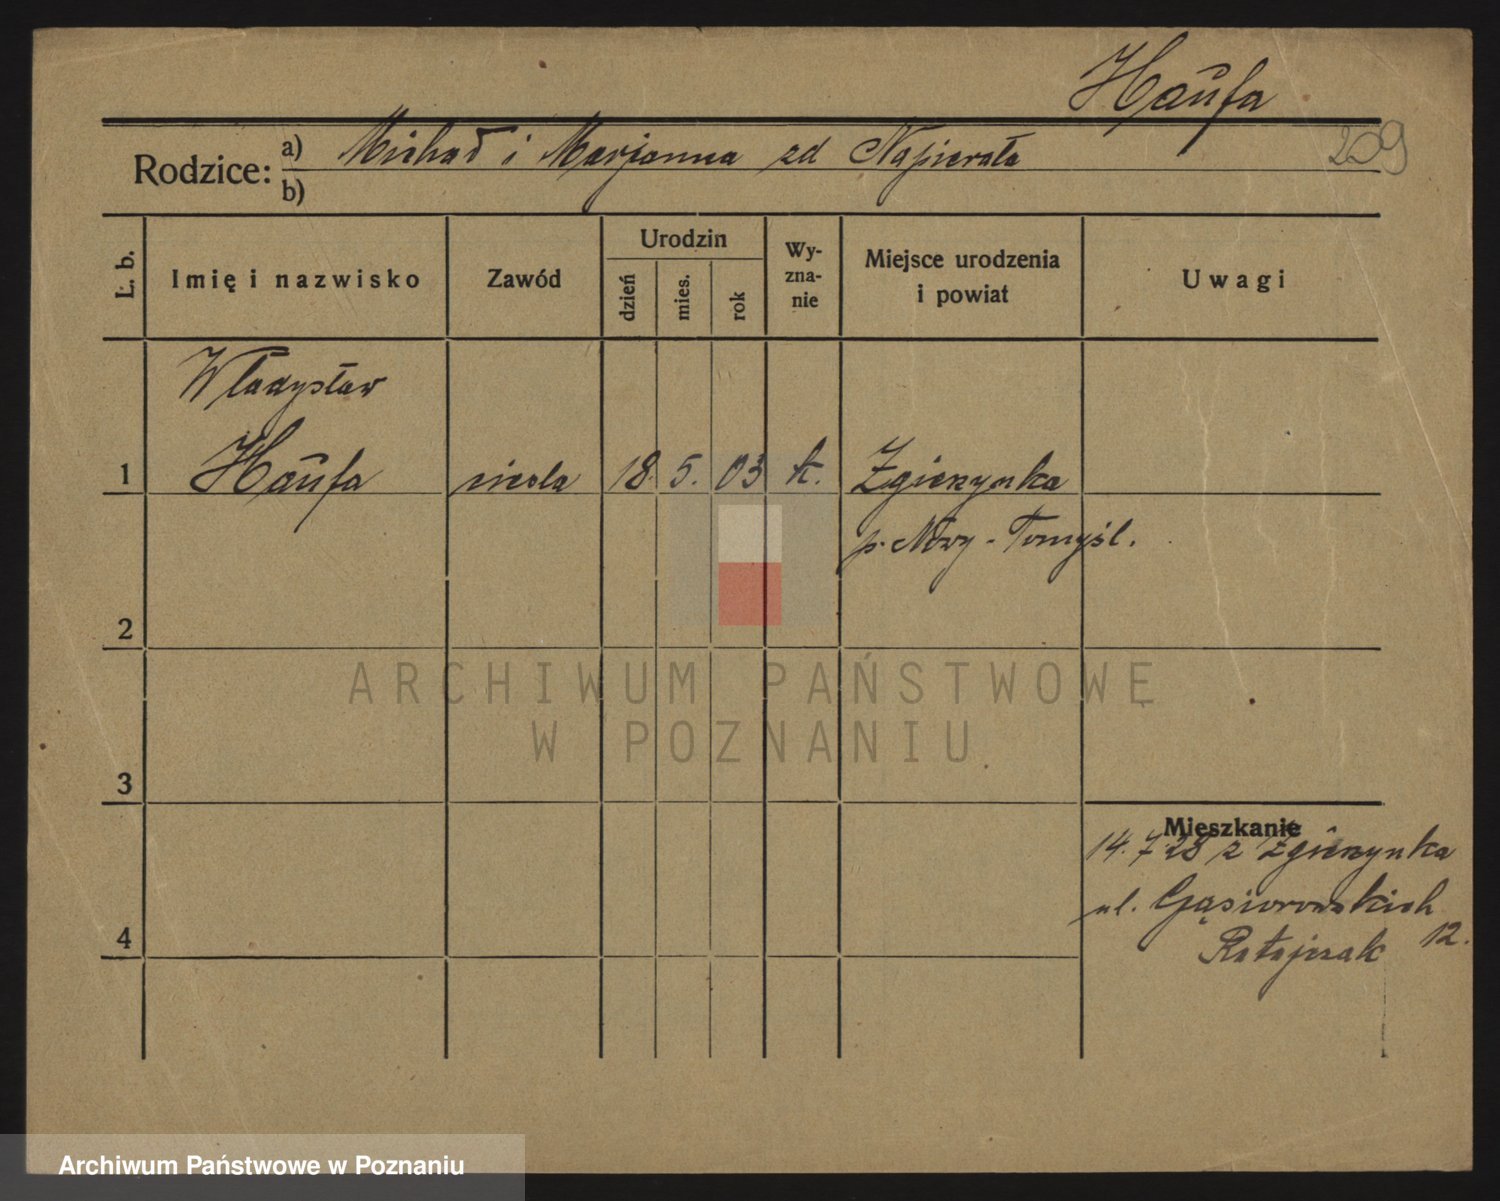 Haufa
209
Rodzice: a) Michał i Marjanna zd Napierała
b)
L. b.
Imię i nazwisko
Zawód
Urodzin
dzień
mies.
rok
Wy-
zna-
nie
Miejsce urodzenia
i powiat
Uwagi
Władysław
1 Haufa cieśla 18. 5. 03 k. Zgierzynka
p. Nowy-Tomyśl.
2
3
4
Mieszkanie
14.7.28 z Zgierzynka
ul. Gąsiorowskich 12.
Ratajczak
ARCHIWUM PAŃSTWOWE
W POZNANIU
Archiwum Państwowe w Poznaniu